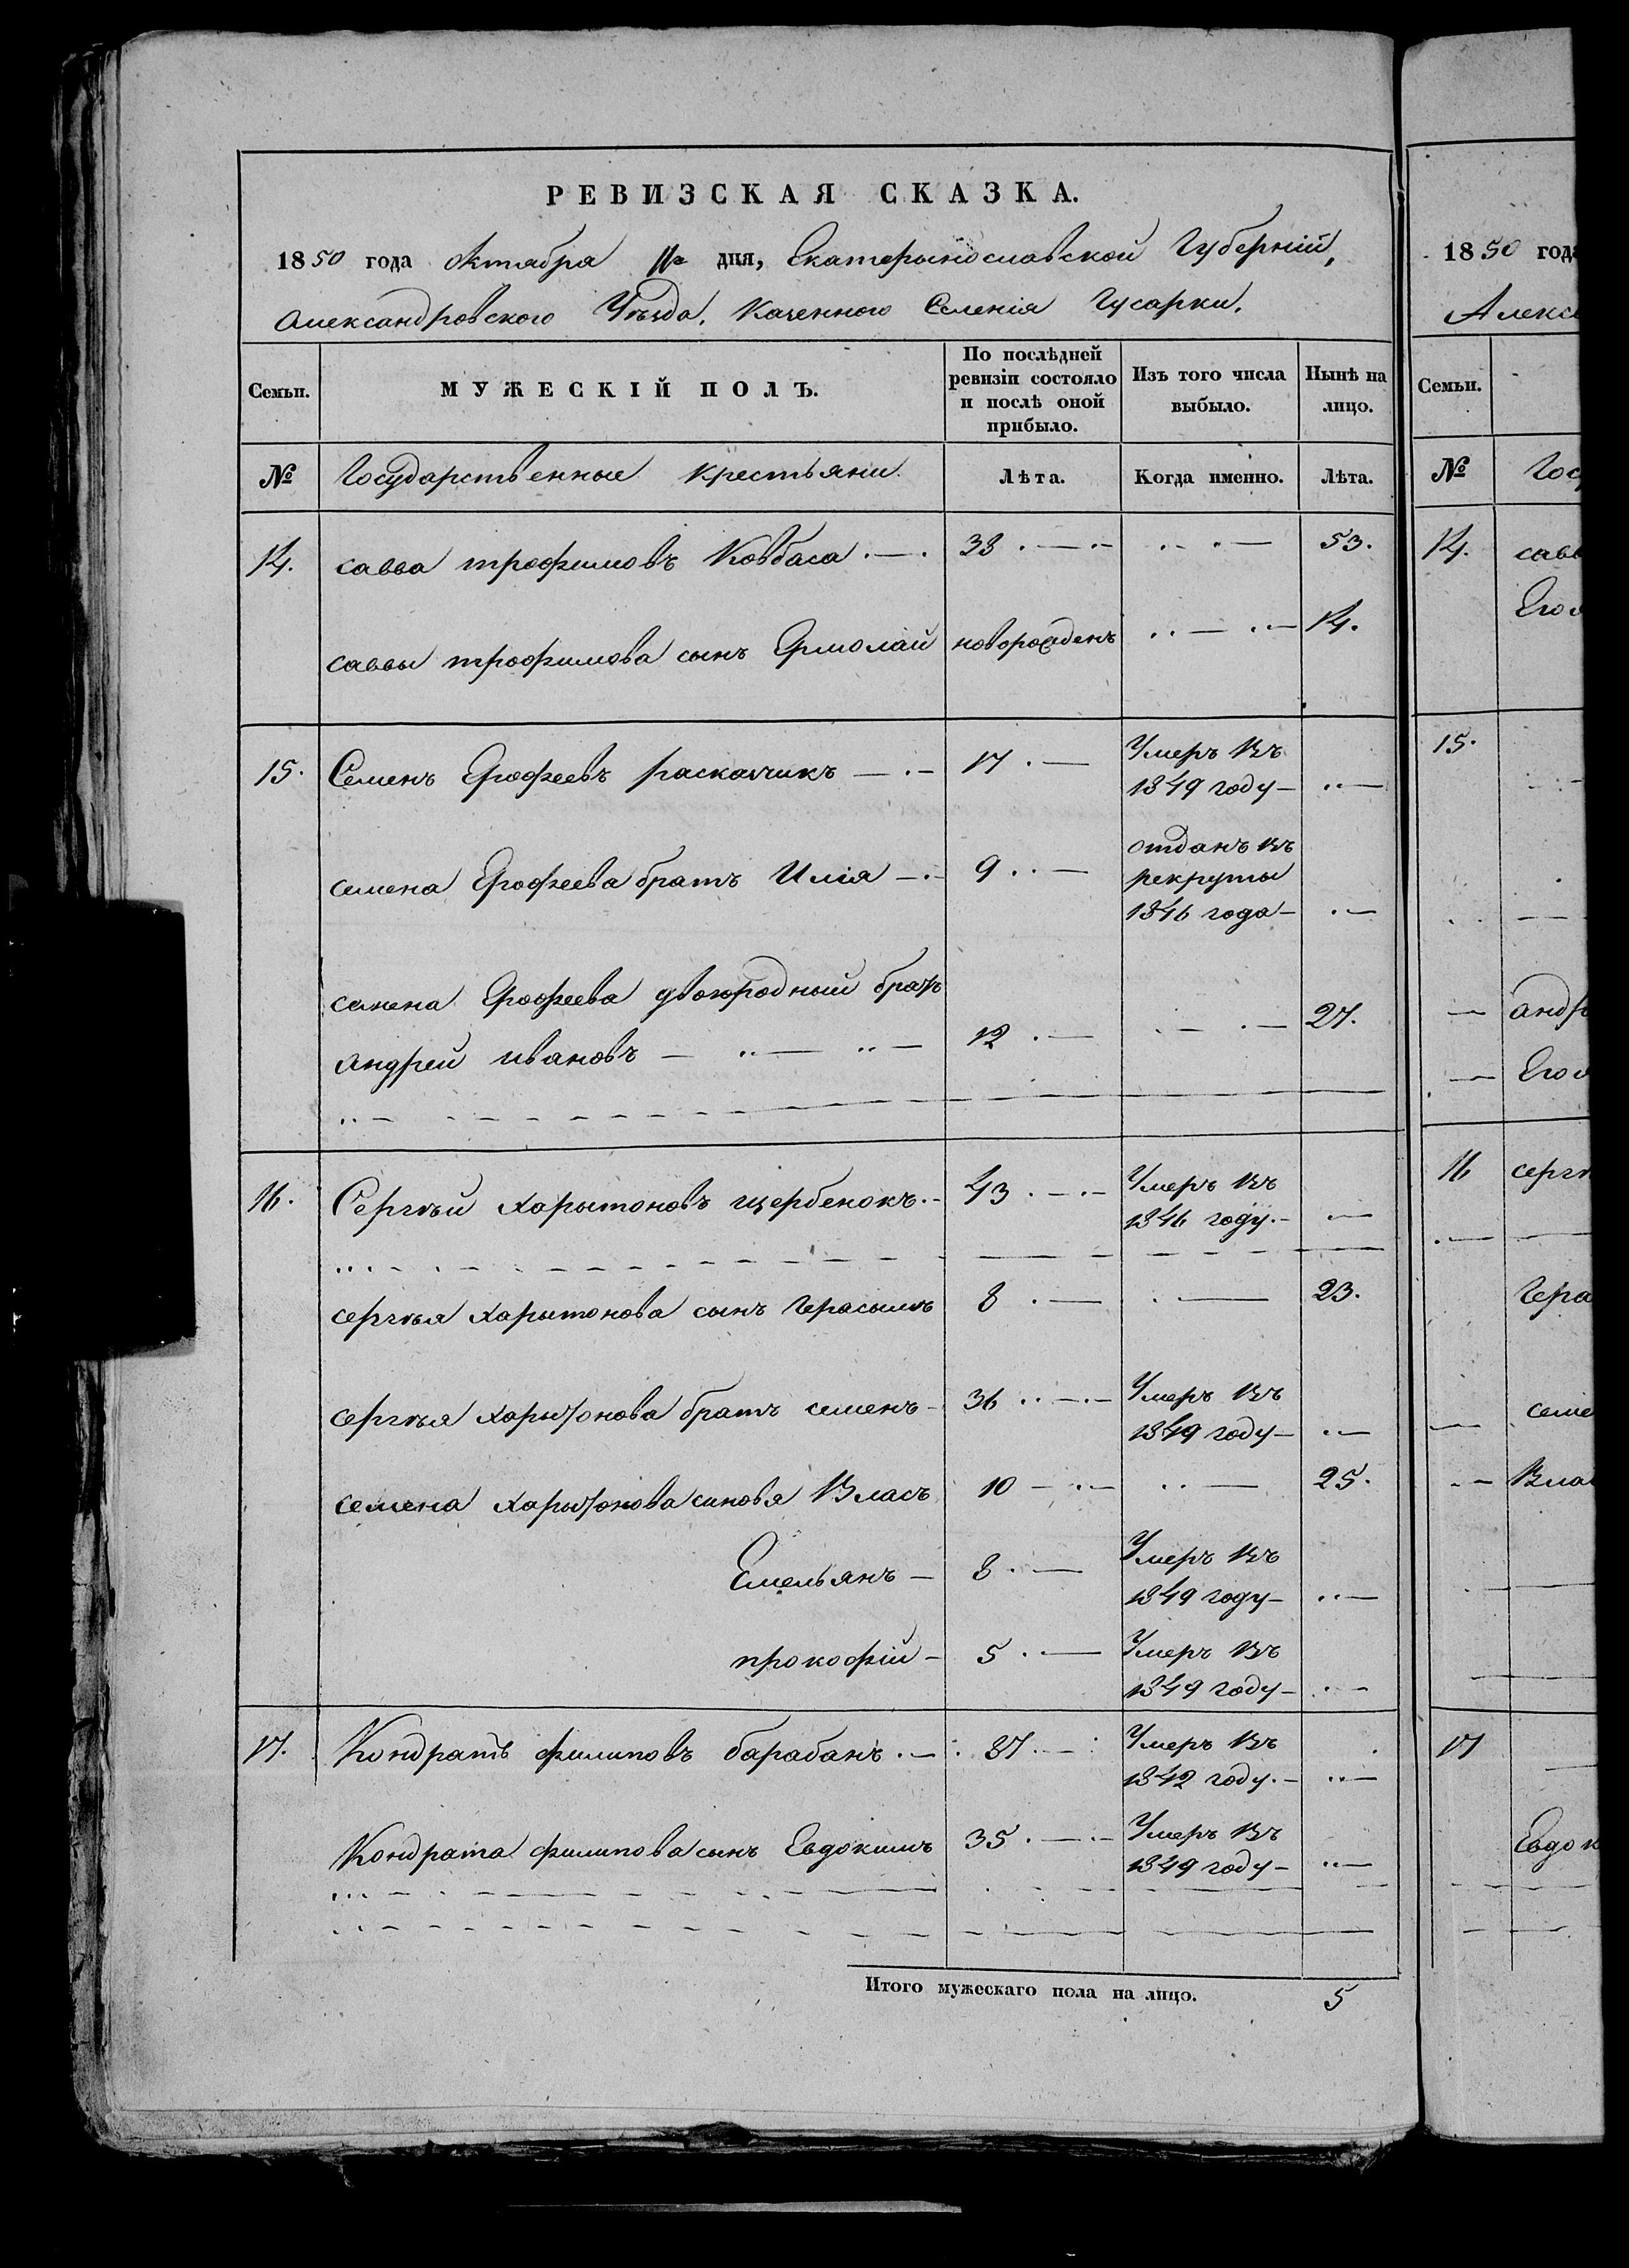 РЕВИЗСКАЯ СКАЗКА.
1850 года октабра 11го дня, Екатерынославской Губерніи,
Александровского Уѣзда, Казенного Селенія Гусарки.
Семьи. МУЖЕСКІЙ ПОЛЪ. По послѣдней ревизіи состояло и послѣ оной прибыло. Изъ того числа выбыло. Нынѣ на лицо.
№ Государственные крестьяни. Лѣта. Когда именно. Лѣта.
14. савва трофимовъ Ковбаса 38 53.
саввы трофимова сынъ Ермолай новорожденъ 14.
15. Семенъ Ерофеевъ раскащикъ 17 Умеръ въ
1849 году
семена Ерофеева братъ Илія 9 отданъ въ
рекруты
1846 года
семена Ерофеева двоюродный братъ
андрей ивановъ 12 27.
16. Сергѣй харытоновъ щербенокъ 43 Умеръ въ
1846 году
сергѣя харытонова сынъ Герасымъ 8 23.
сергѣя харытонова братъ семенъ 36 Умеръ въ
1849 году
семена харытонова синовя Власъ 10 25.
Емельянъ 8 Умеръ въ
1849 году
прокофій 5 Умеръ въ
1849 году
17. Кондратъ филиповъ барабанъ 87 Умеръ въ
1842 году
Кондрата филипова сынъ Евдокимъ 35 Умеръ въ
1849 году
Итого мужескаго пола на лицо. 5
1850 года
Алекса
Семьи.
№ Гос
14. сав
Его
15.
андр
Его
16 серг
Гера
семе
Влас
17
Евдок